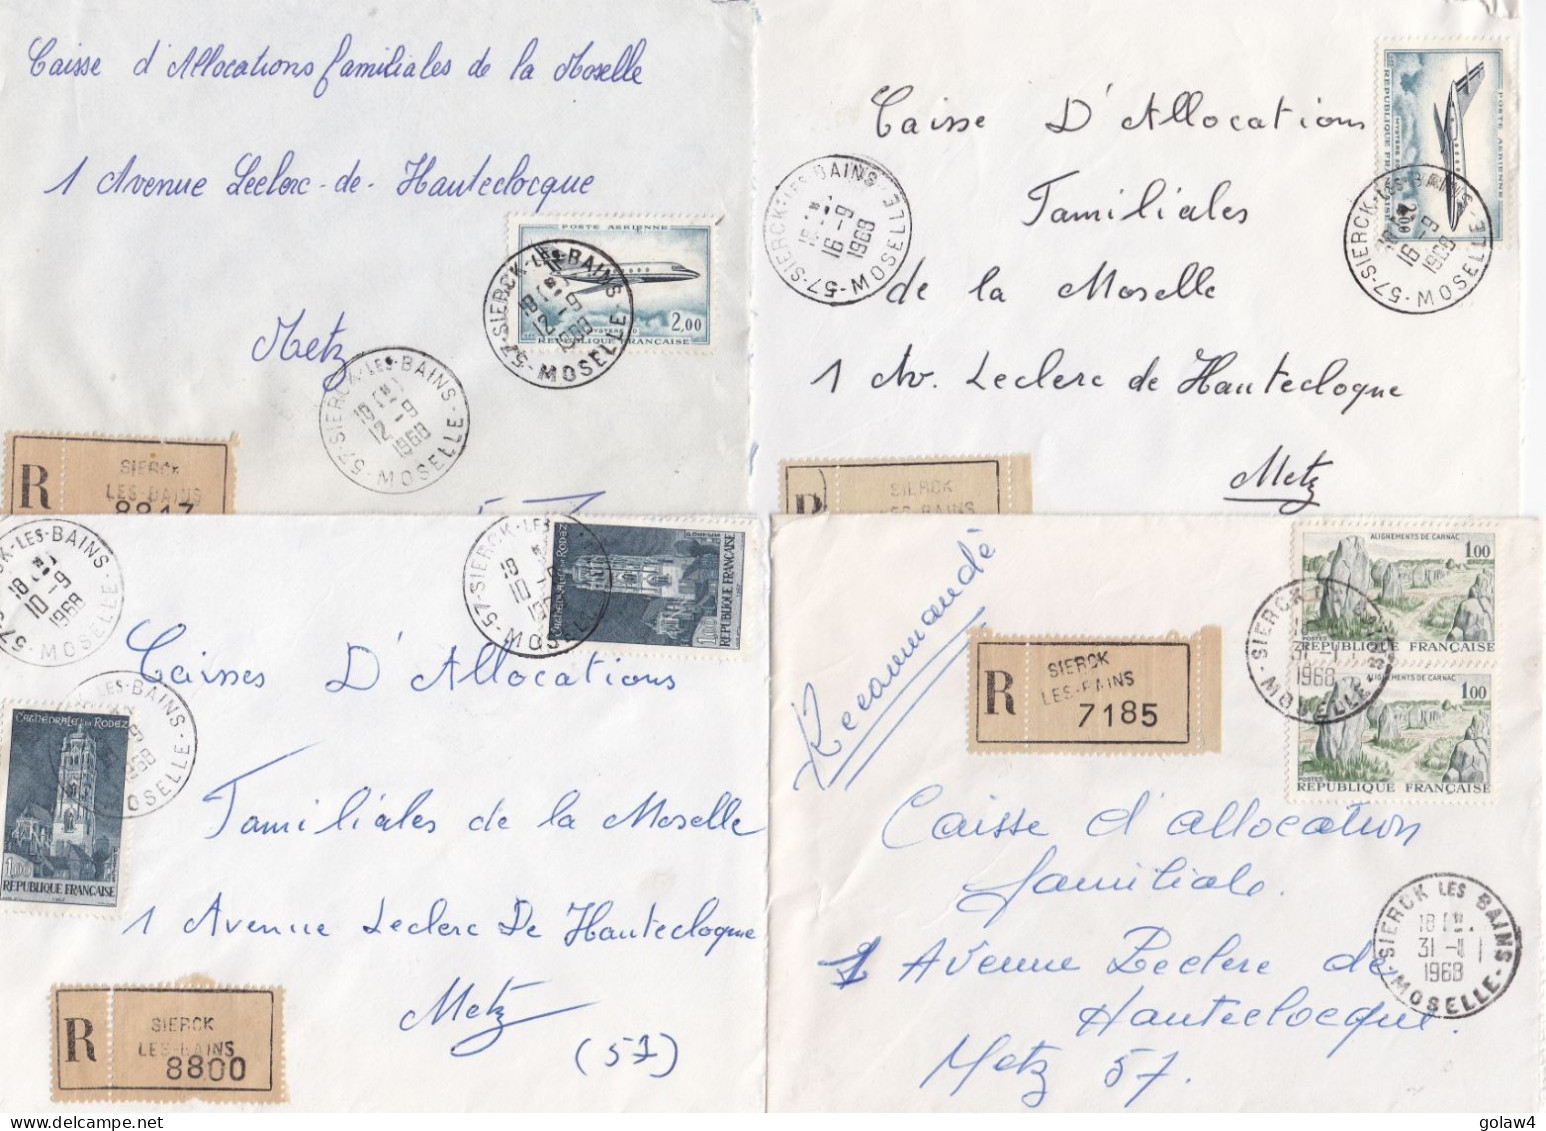 Caisse d'Allocations familiales de la Moselle
1 Avenue Leclerc-de-Hauteclocque
Metz
POSTE AÉRIENNE
MYSTERE 20
2,00
RÉPUBLIQUE FRANÇAISE
57-SIERCK-LES-BAINS-MOSELLE
18H
12-9
1968
57-SIERCK-LES-BAINS-MOSELLE
18H
12-9
1968
R
SIERCK
LES-BAINS
8817
Caisse D'Allocations
Familiales
de la Moselle
1 Av. Leclerc de Hauteclogue
Metz
POSTE AÉRIENNE
MYSTERE 20
2,00
RÉPUBLIQUE FRANÇAISE
57-SIERCK-LES-BAINS-MOSELLE
16-9
1968
57-SIERCK-LES-BAINS-MOSELLE
16-9
1968
R
SIERCK
LES-BAINS
CK-LES-BAINS-MOSELLE
18H
10-9
1968
57-SIERCK-LES
18H
10-9
MOSELLE
Cathédrale de Rodez
1,00
RÉPUBLIQUE FRANÇAISE
LES-BAINS
1968
MOSELLE
Cathédrale de Rodez
1,00
RÉPUBLIQUE FRANÇAISE
Caisses D'Allocations
Familiales de la Moselle
1 Avenue Leclerc De Hauteclogue
Metz
(57)
R
SIERCK
LES-BAINS
8800
Recommandé
R
SIERCK
LES-BAINS
7185
ALIGNEMENTS DE CARNAC
1,00
POSTES
RÉPUBLIQUE FRANÇAISE
ALIGNEMENTS DE CARNAC
1,00
POSTES
RÉPUBLIQUE FRANÇAISE
SIERCK LES BAINS
31-1
1968
MOSELLE
Caisse d'allocation
familiale.
1 Avenue Leclerc de
Hauteclocque.
Metz 57.
SIERCK LES BAINS
18H
31-1
1968
MOSELLE
golaw4